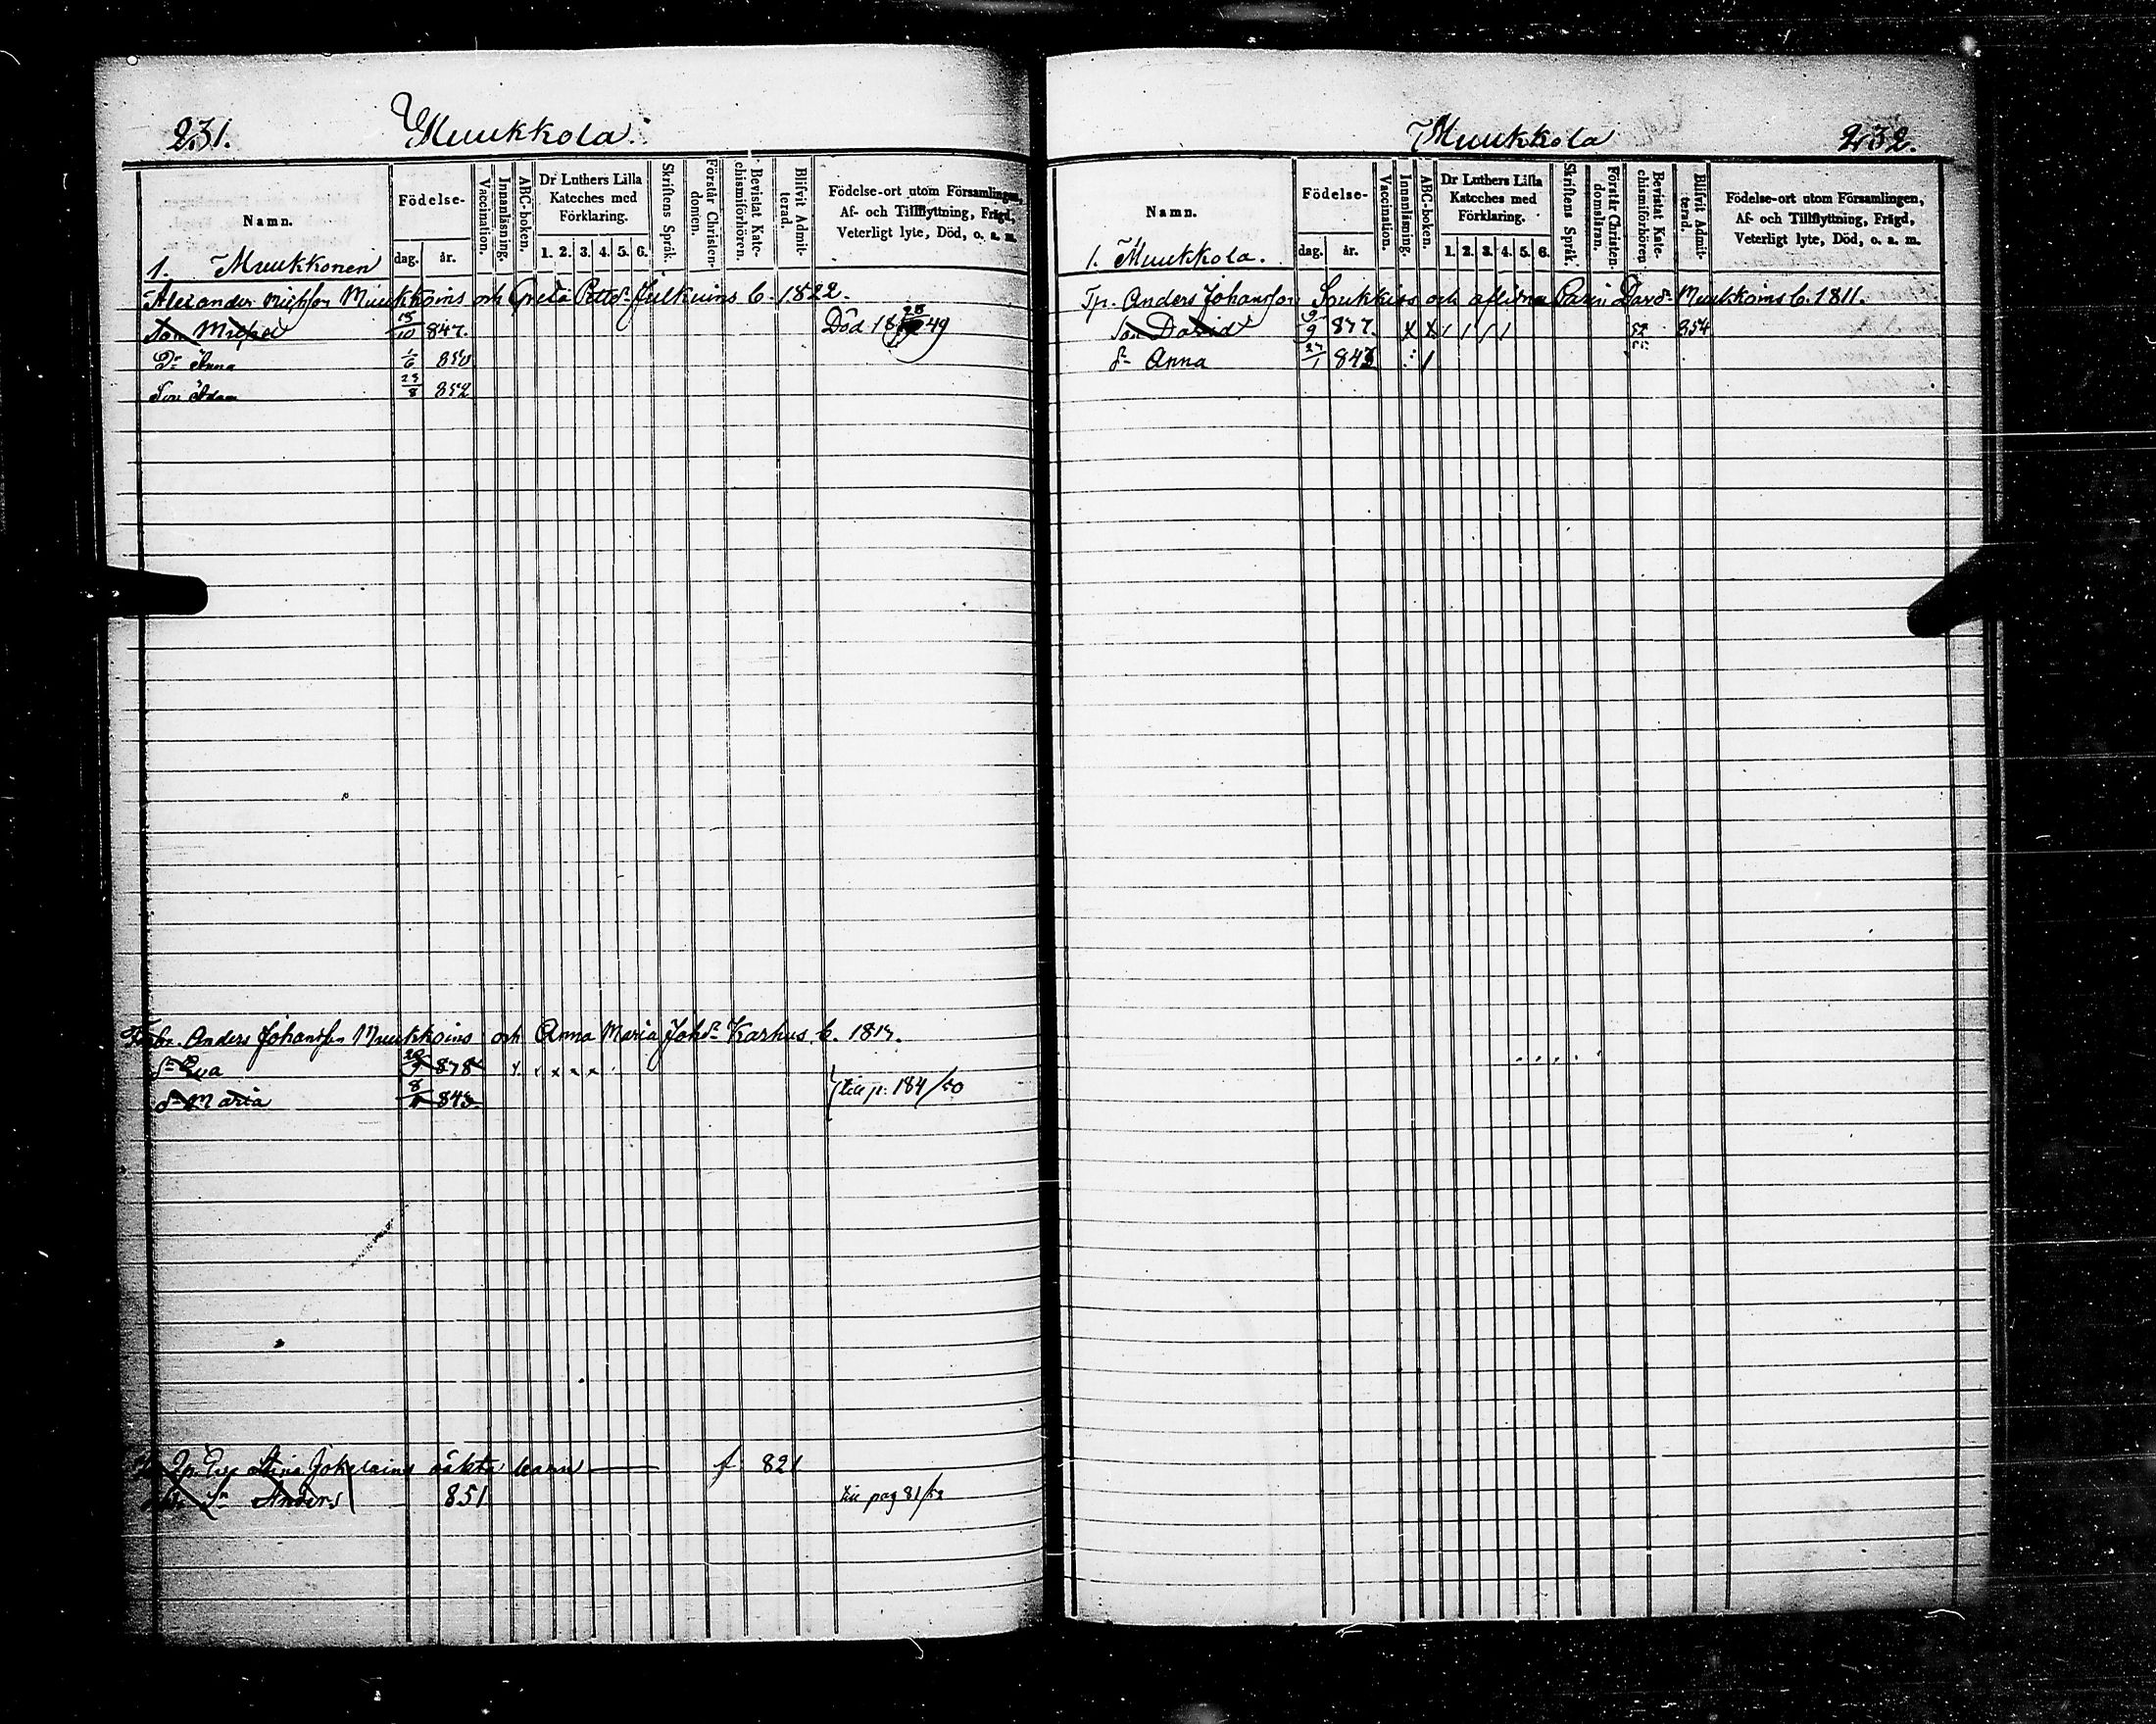 231. Muukkola.
Namn.
Födelse-
dag. år.
Vaccination.
Innanläsning.
ABC-boken.
Dr Luthers Lilla Kateches med Förklaring.
1. 2. 3. 4. 5. 6.
Skriftens Språk.
Förstår Christendomen.
Bevistat Katechismiförhören.
Blifvit Admitterad.
Födelse-ort utom Församlingen,
Af- och Tillflyttning, Frägd,
Veterligt lyte, Död, o. a. m.
1. Muukkonen
Alexander Michsson Muukkoins och Greta Petto. Julkuins b. 1822.
Son Michel 18/10 847. Död 49
Dr Anna 1/6 850
Son Adam 23/8 852
Anders Johansson Muukkoins och Anna Maria Johdr Karhus b. 1817.
dr Eva 838
dr Maria 8 843 till p. 184/50
Stina Jokelains oäkta barn f. 821
Anders 851 till pag 81/52
Muukkola 232.
Namn.
Födelse-
dag. år.
Vaccination.
Innanläsning.
ABC-boken.
Dr Luthers Lilla Kateches med Förklaring.
1. 2. 3. 4. 5. 6.
Skriftens Språk.
Förstår Christendomsläran.
Bevistat Katechismiförhören
Blifvit Admitterad.
Födelse-ort utom Församlingen,
Af- och Tillflyttning, Frägd,
Veterligt lyte, Död, o. a. m.
1. Muukkola.
Tp. Anders Johansson Soukkios och aflidna Carin Davdr Muukkoins b. 1811.
Son David 9/9 837. X X 1 1 1 1 854
dr Anna 27/1 843